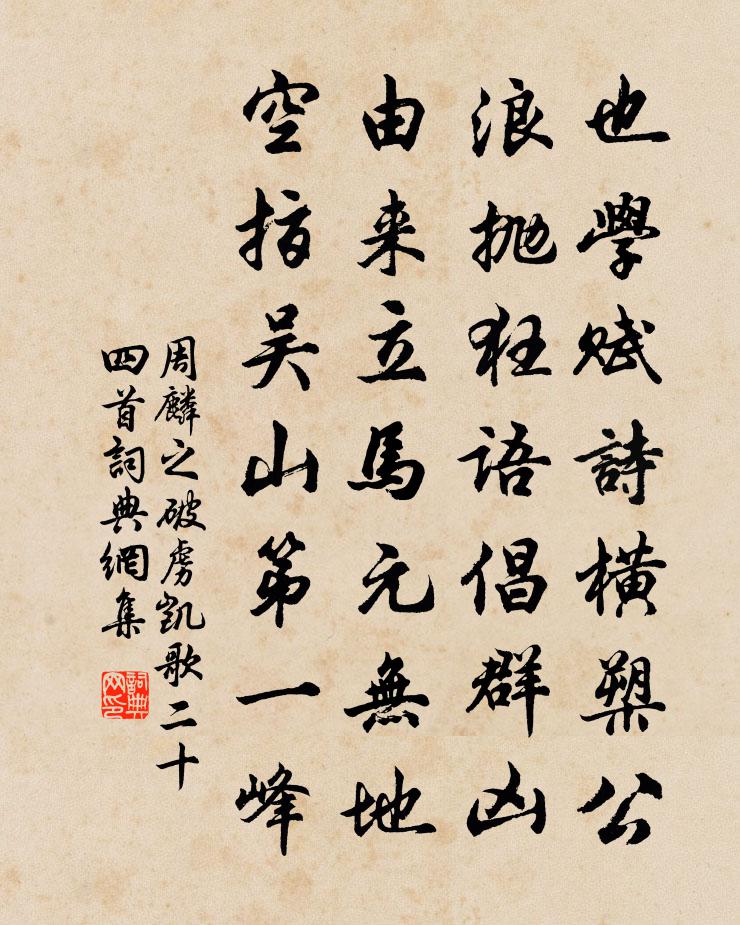 也學賦詩橫槊公
浪抛狂語倡群凶
由来立馬元無地
空指吴山第一峰
周麟之破虜凱歌二十
四首詞典網集
詞典
网印